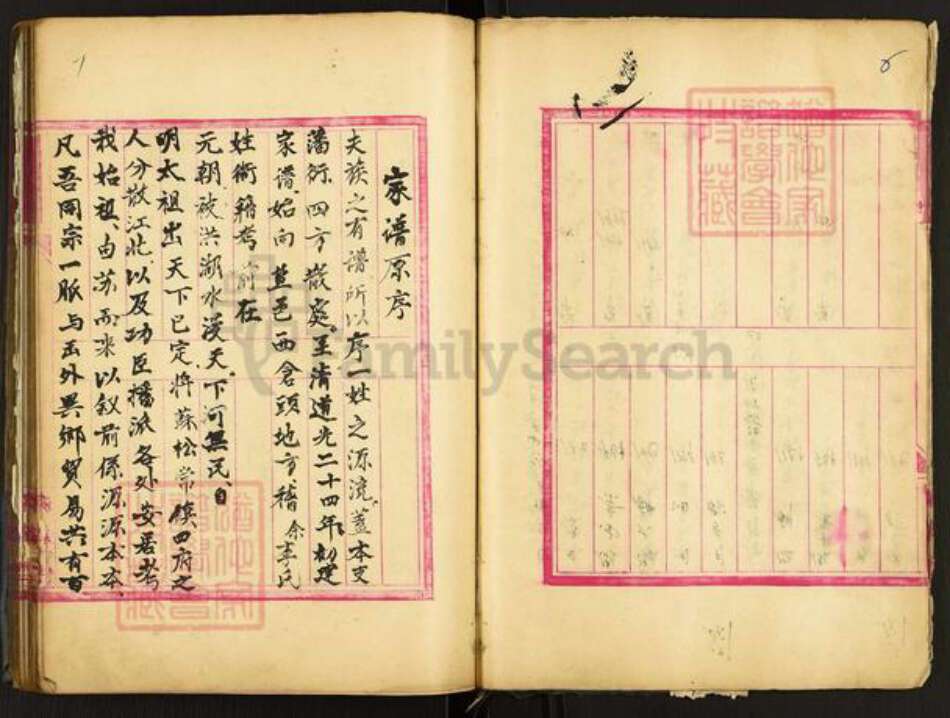 家譜原序
夫族之有譜所以序一姓之源流蓋本支
藩衍四方散處至清道光二十四年創建
家譜始向藍邑西倉頭地方稽余李氏
姓衛籍考前在
元朝被洪湖水漫天下河無民自
明太祖出天下已定將蘇松常鎮四府之
人分散江北以及功臣播派各处安居考
我始祖由苏而來以叙前係源源本本
凡吾同宗一脈与在外異鄉貿易共有百
FamilySearch